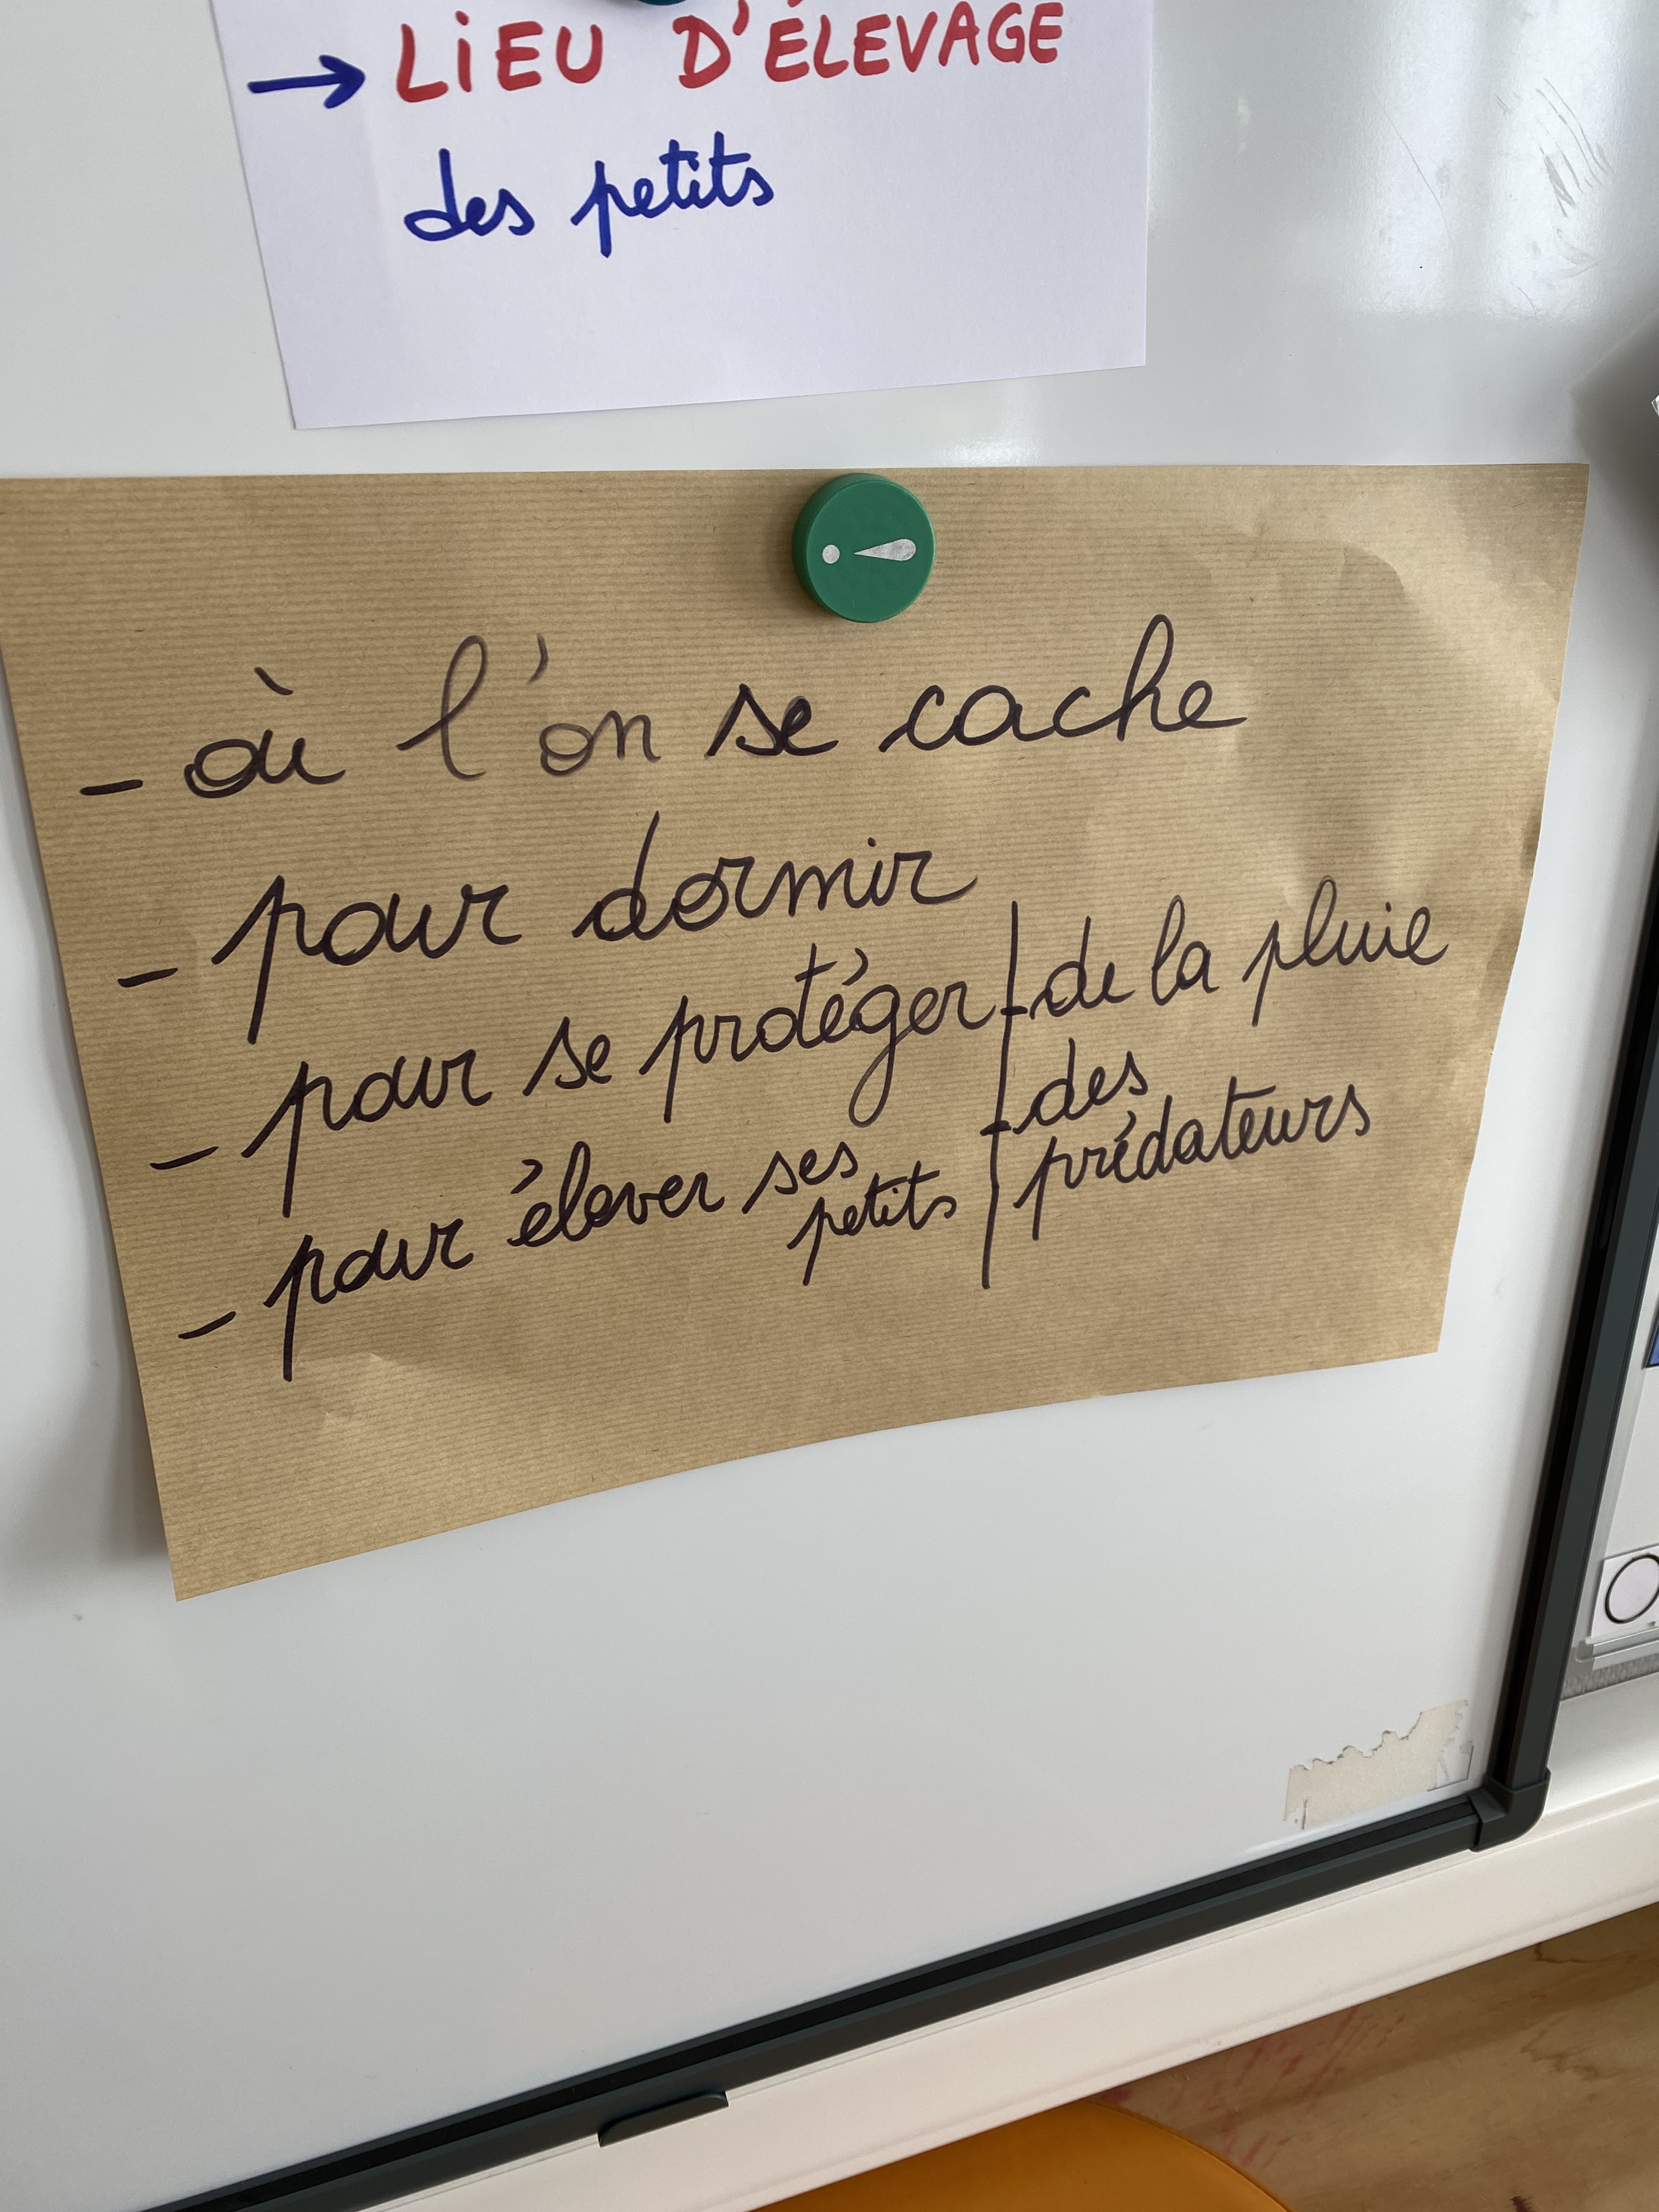 → LiEU D'ÉLEVAGE
des petits
- où l'on se cache
- pour dormir
- pour se protéger
- de la pluie
- des
prédateurs
- pour élever ses
petits